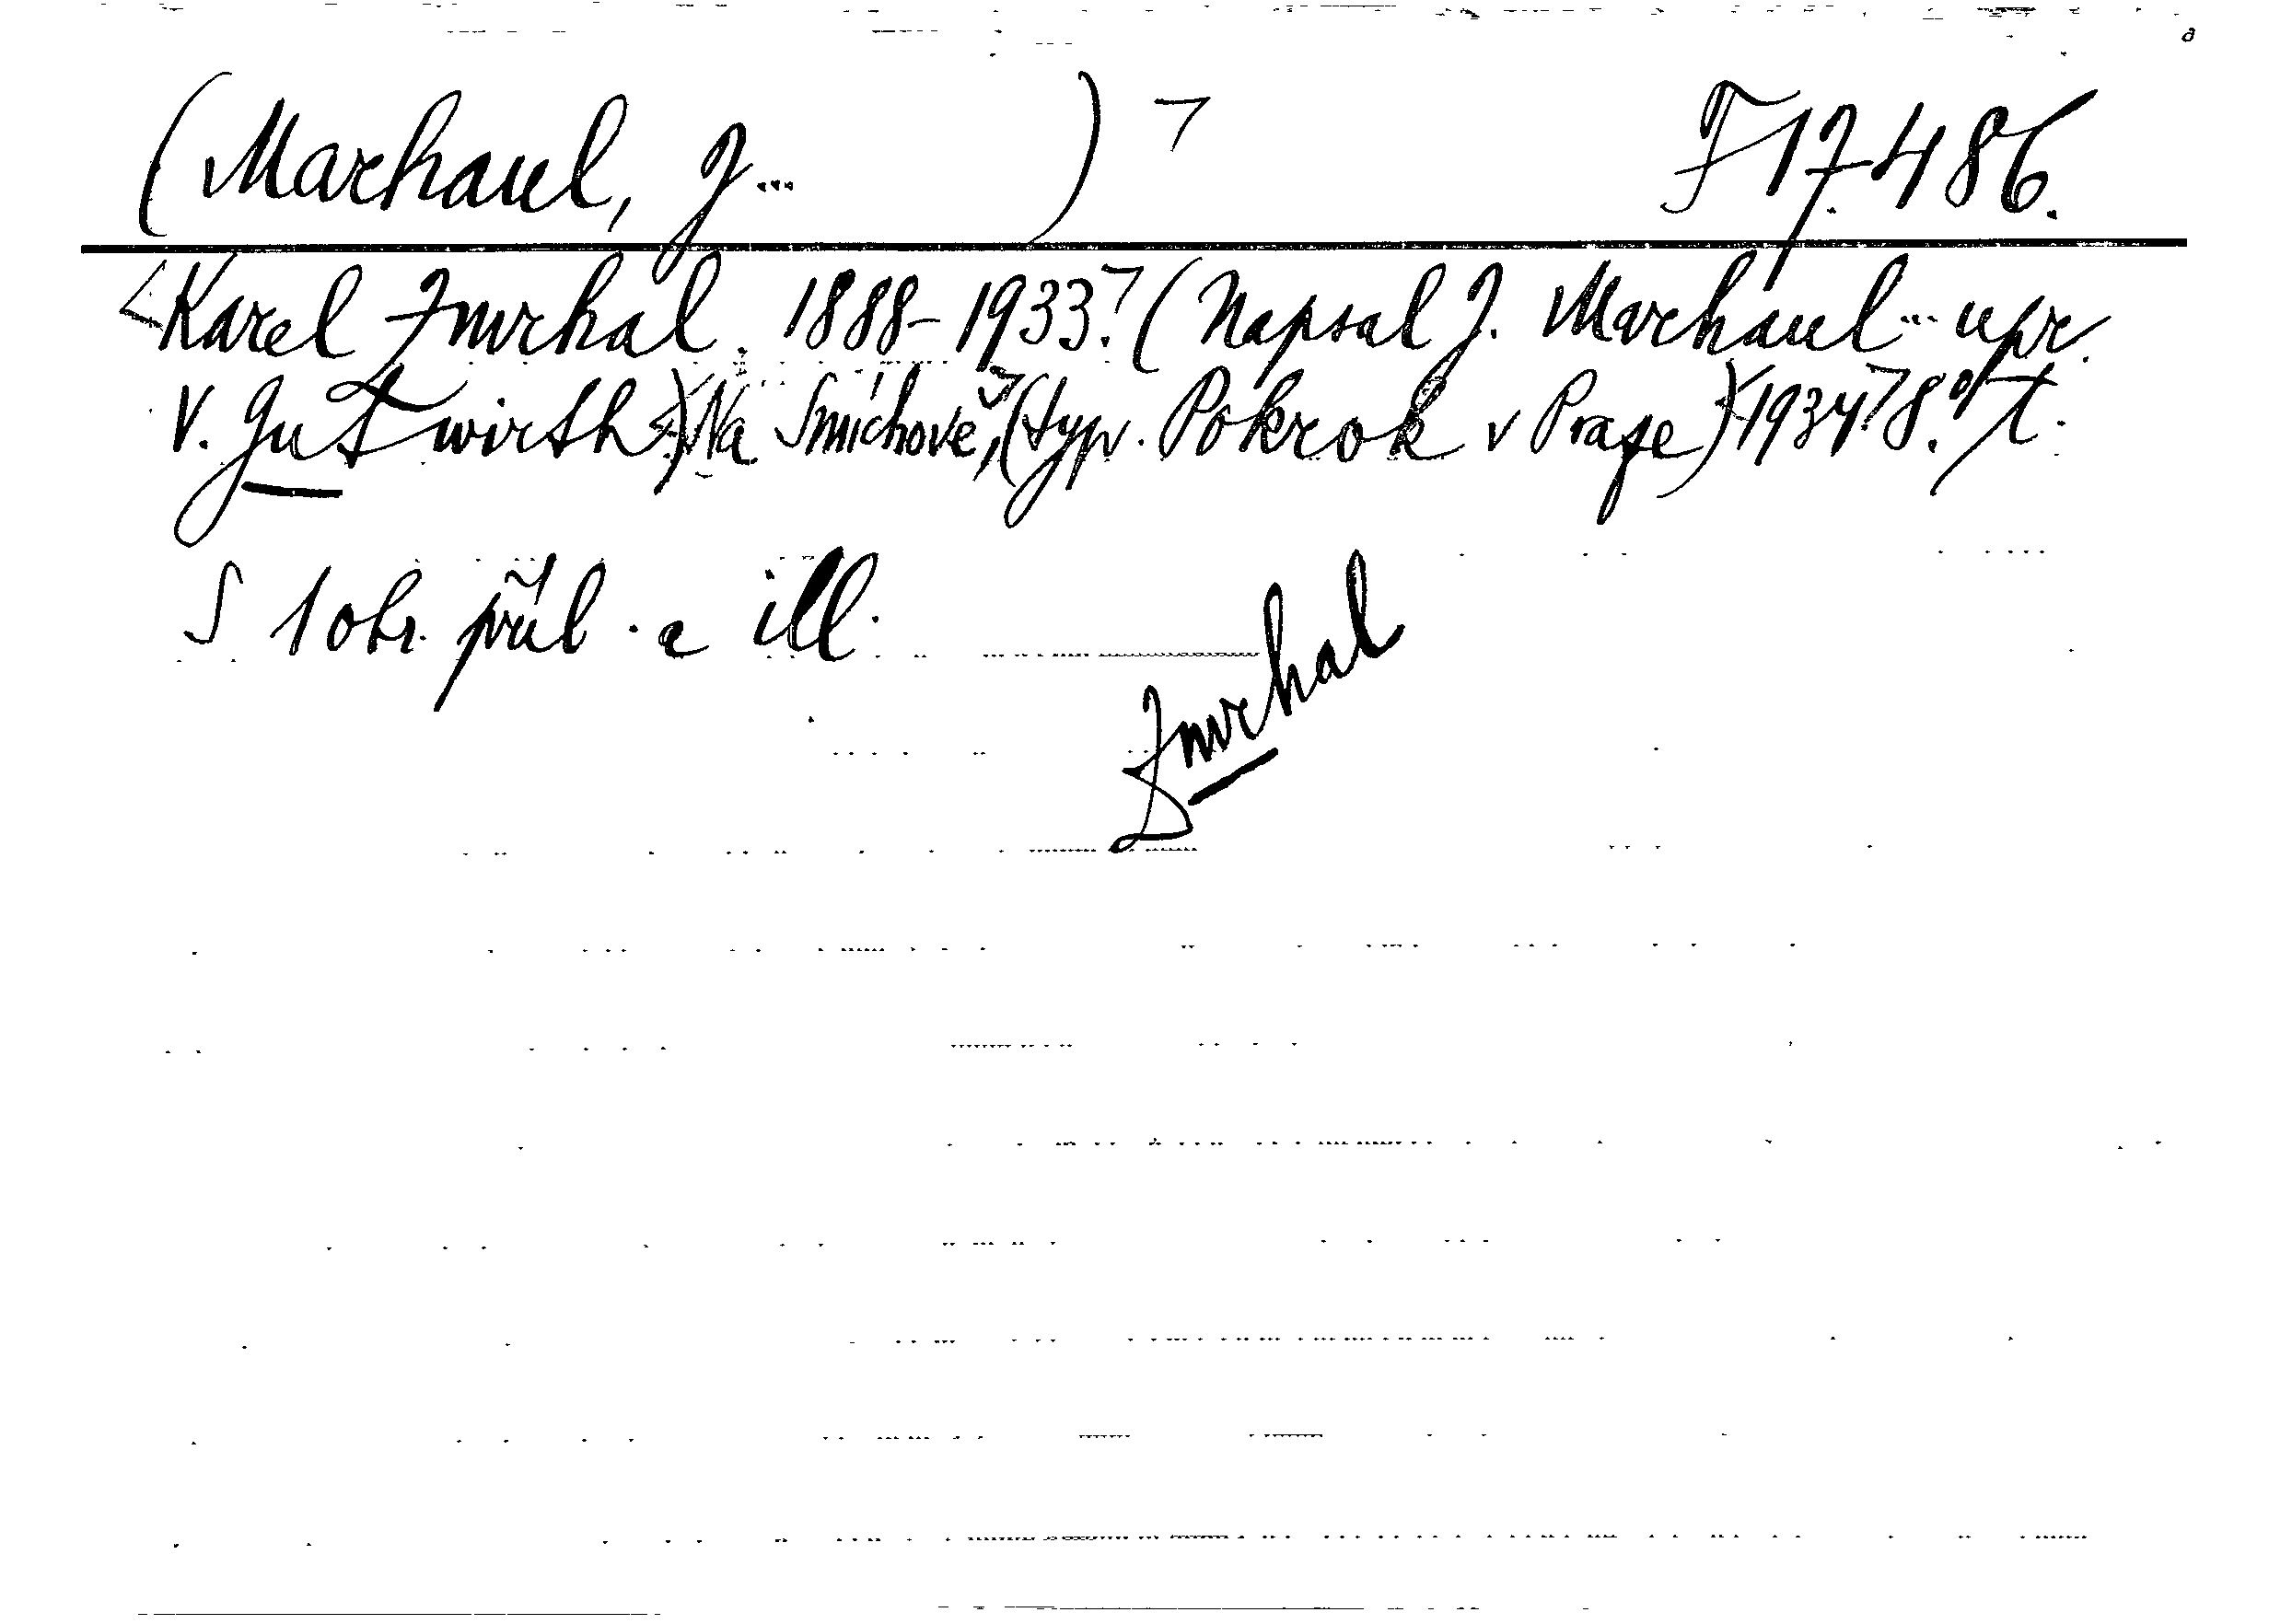 (Marhaul, J... ) ¬ F 17.486.
<Karel Zmrhal. 1888-1933.¬ (Napsal J. Marhaul... upr.
V. Gutwirth.) <Na Smíchově,¬ (typ. Pokrok v Praze) <1934.¬ 8.° / t.
S 1 obr. příl. a ill.
Zmrhal